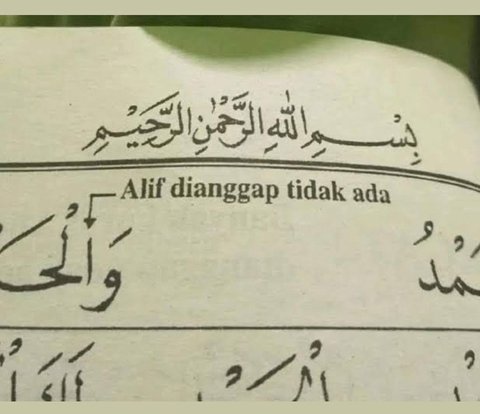 بِسْمِ اللهِ الرَّحْمٰنِ الرَّحِيْمِ
Alif dianggap tidak ada
ـمْدُ وَالْحَـ